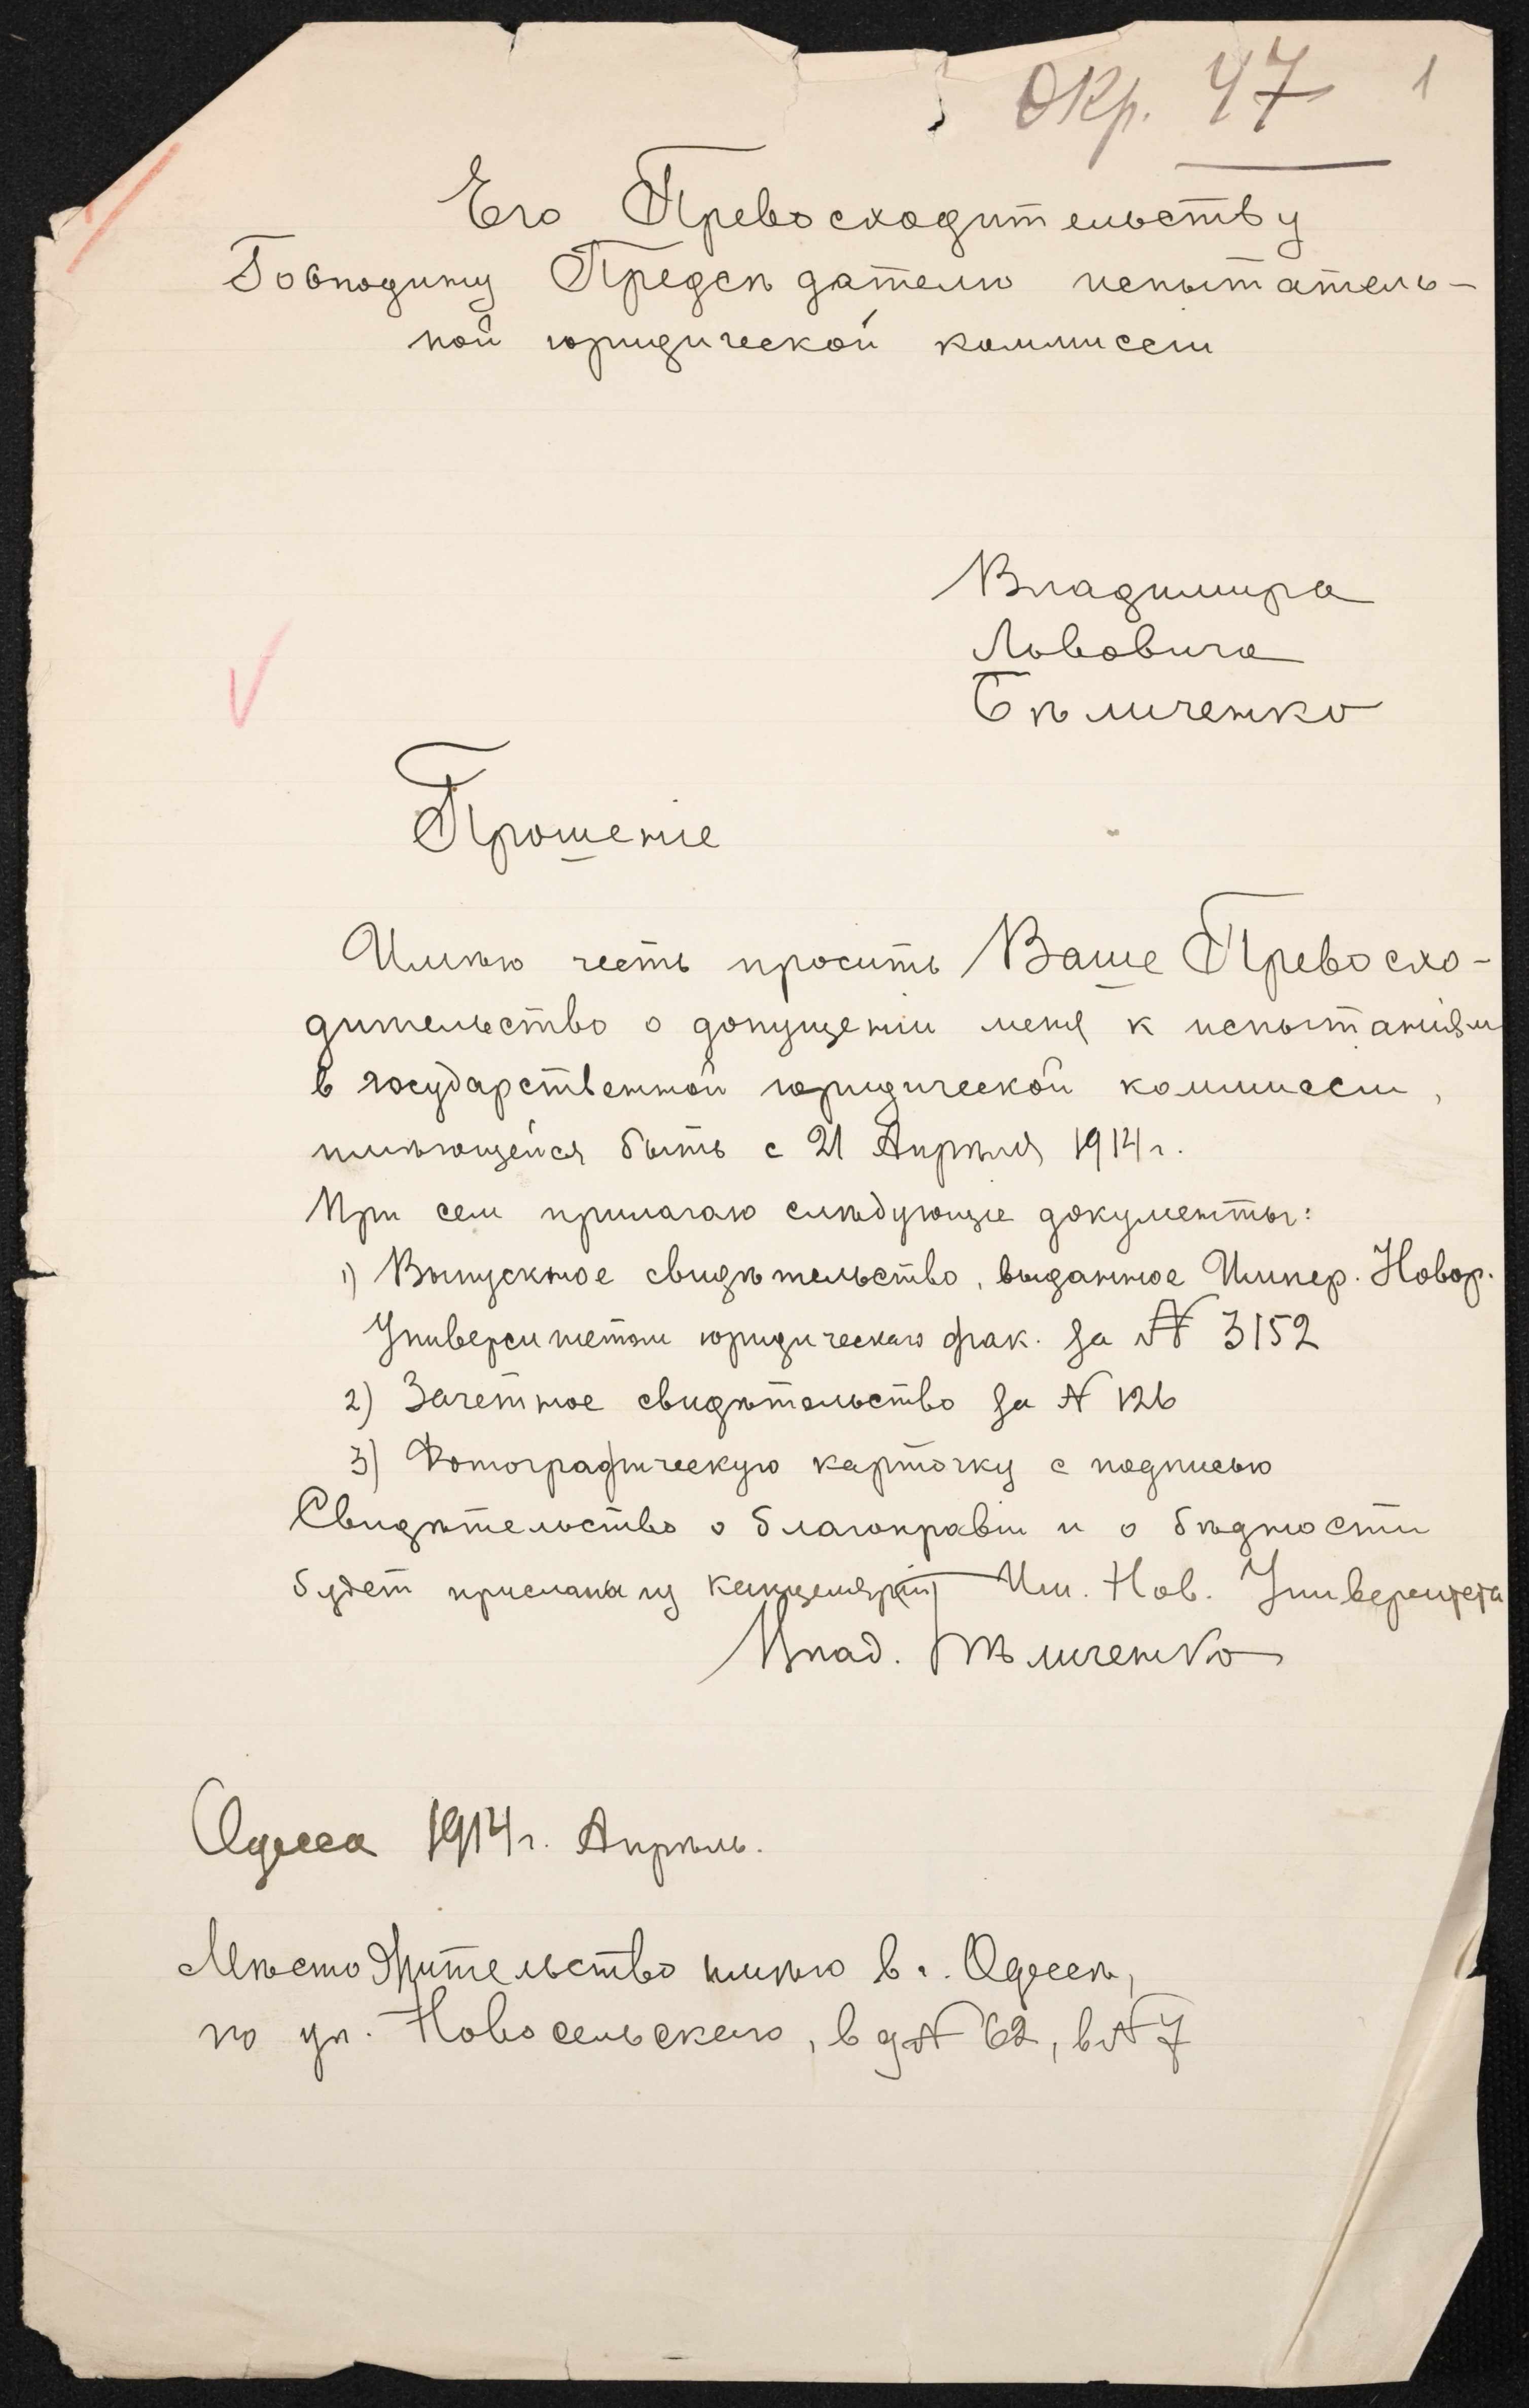 Окр. 47 1
Его Превосходительству
Господину Предсѣдателю испытатель-
ной юридической коммиссіи
Владимира
Львовича
Бѣличенко
Прошеніе
Имѣю честь просить Ваше Превосхо-
дительство о допущеніи меня к испытаніям
в государственной юридической коммиссіи,
имѣющейся быть с 21 Апрѣля 1914 г.
При сем прилагаю слѣдующіе документы:
1) Выпускное свидѣтельство, выданное Импер. Новор.
Университетом юридическаго фак. за № 3152
2) Зачетное свидѣтельство за № 126
3) Фотографическую карточку с подписью
Свидѣтельство о благонравіи и о бѣдности
будет прислана из канцеляріи Им. Нов. Университета
Влад. Бѣличенко
Одесса 1914 г. Апрѣль.
Мѣстожительство имѣю в г. Одессѣ,
по ул. Новосельскаго, в д № 62, в № 7